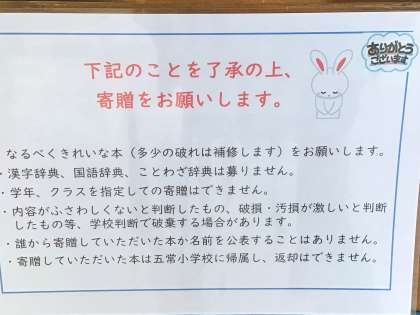 ありがとう
ございます
下記のことを了承の上、
寄贈をお願いします。
なるべくきれいな本（多少の破れは補修します）をお願いします。
・漢字辞典、国語辞典、ことわざ辞典は募りません。
・学年、クラスを指定しての寄贈はできません。
・内容がふさわしくないと判断したもの、破損・汚損が激しいと判断
したもの等、学校判断で破棄する場合があります。
・誰から寄贈していただいた本か名前を公表することはありません。
・寄贈していただいた本は五常小学校に帰属し、返却はできません。